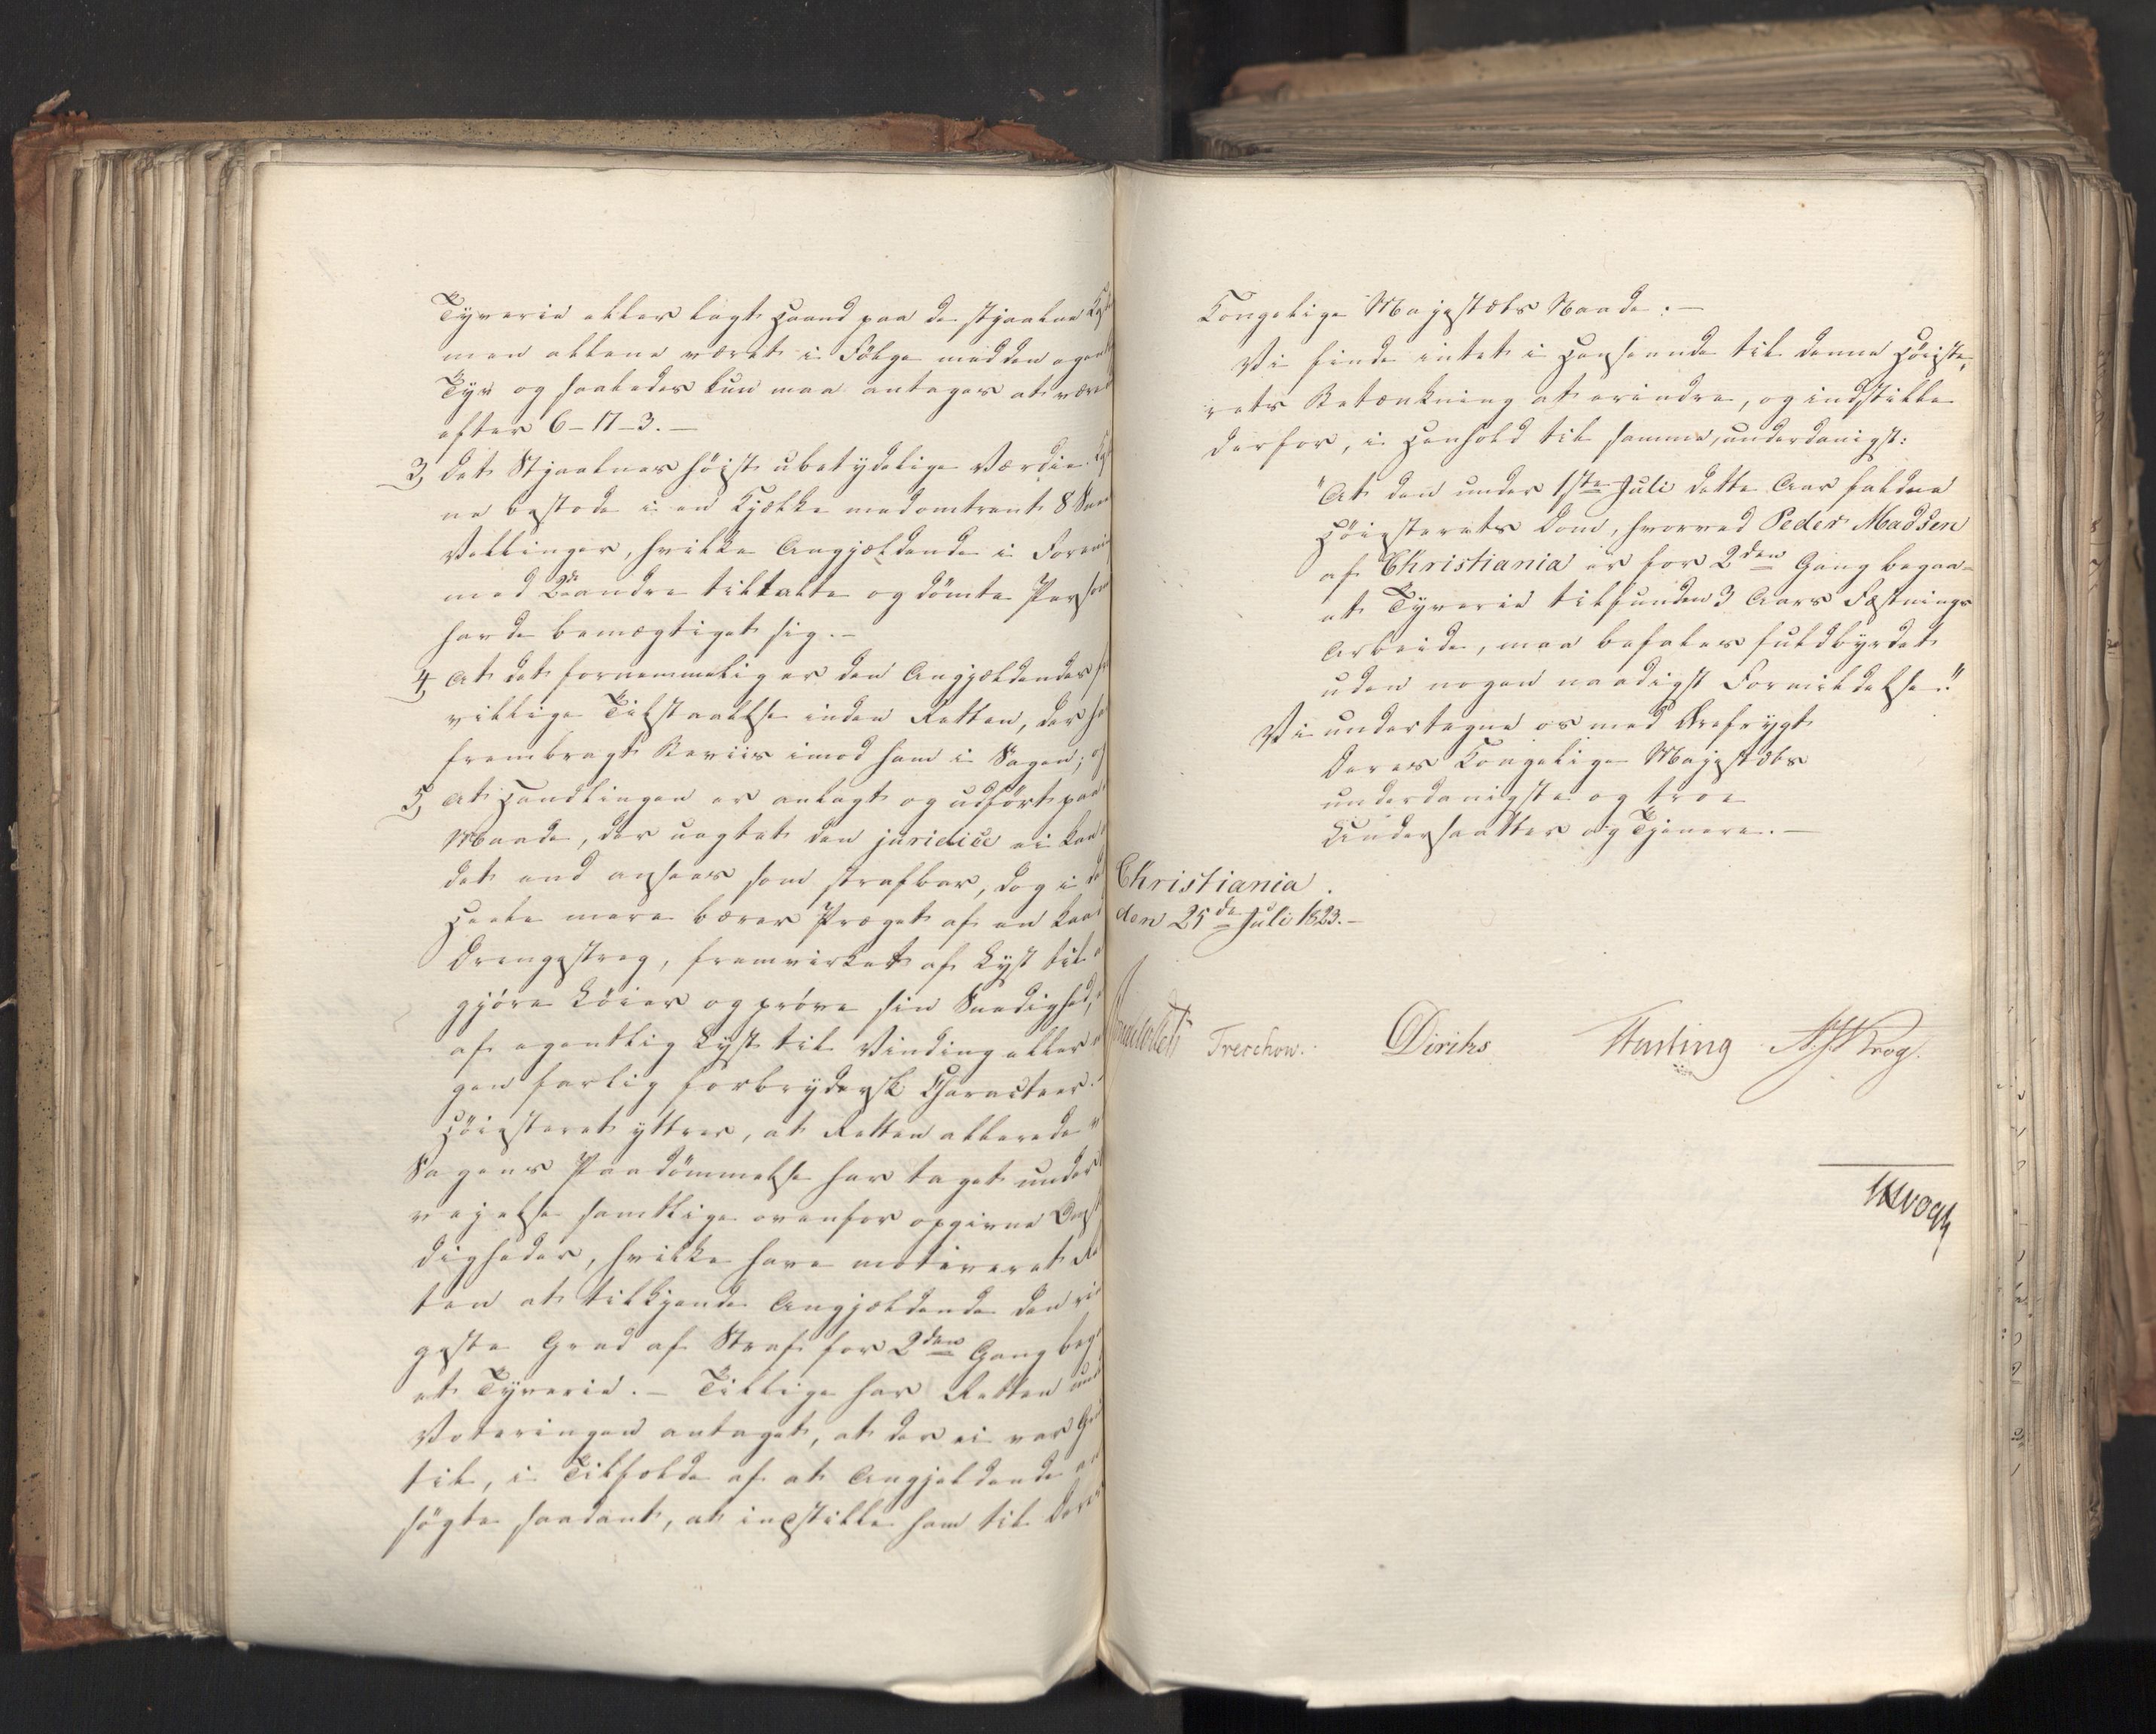 Tyverie eller lagt Haand paa de stjaalne
men allene været i Følge med den
Tyv og saaledes kun maa antages at
efter 6–17–3.–
3, Det Stjaalnes høist ubetydelige Værdie.
ne bestode i en Kjække med omtrent 8
Vellinger, hvilke Angjældende i
med 2de andre tiltalte og dømte
havde bemægtiget sig.–
4, At det fornemmelig er den Angjældendes
villige Tilstaaelse inden Retten, der
frembragt Beviis imod ham i Sagen;
5, At Handlingen er anlagt og udført paa
Maade, der uagtet den juridice ei kan
det end ansees som strafbar, dog i
Hele mere bærer Præget af en
Drengestreg, fremvirket af Lyst til
gjøre Løier og prøve sin Snedighed,
af egentlig Lyst til Vinding eller
gen farlig forbrydersk Characteer.
Høiesteret yttrer, at Retten allerede
Sagens Paadømmelse har taget under
veielse samtlige ovenfor opgivne
digheder, hvilke have motiveret
ten at tilkjende Angjældende den
geste Grad af Straf for 2den Gang
et Tyverie.– Tillige har Retten
Voteringen antaget, at der ei var
til, i Tilfælde af at Angjeldende
søgte saadant, at indstille ham til
Kongelige Majestæts Naade.–
Vi finde intet i Henseende til denne Høieste,
rets Betænkning at erindre, og indstille
derfor, i Henhold til samme, underdanigst:
"At den under 1ste Juli dette Aar faldne
Høiesterets Dom, hvorved Peder Madsen
af Christiania er for 2den Gang begaa-
et Tyverie tilfunden 3 Aars Fæstnings
Arbeide, maa befales fuldbyrdet
uden nogen naadigst Formildelse."
Vi undertegne os med Ærefrygt
Deres Kongelige Majestæts
underdanigste og troe
Undersaatter og Tjenere.–
Christiania
den 25de Juli 1823.–
Treschow. Diriks Krog.